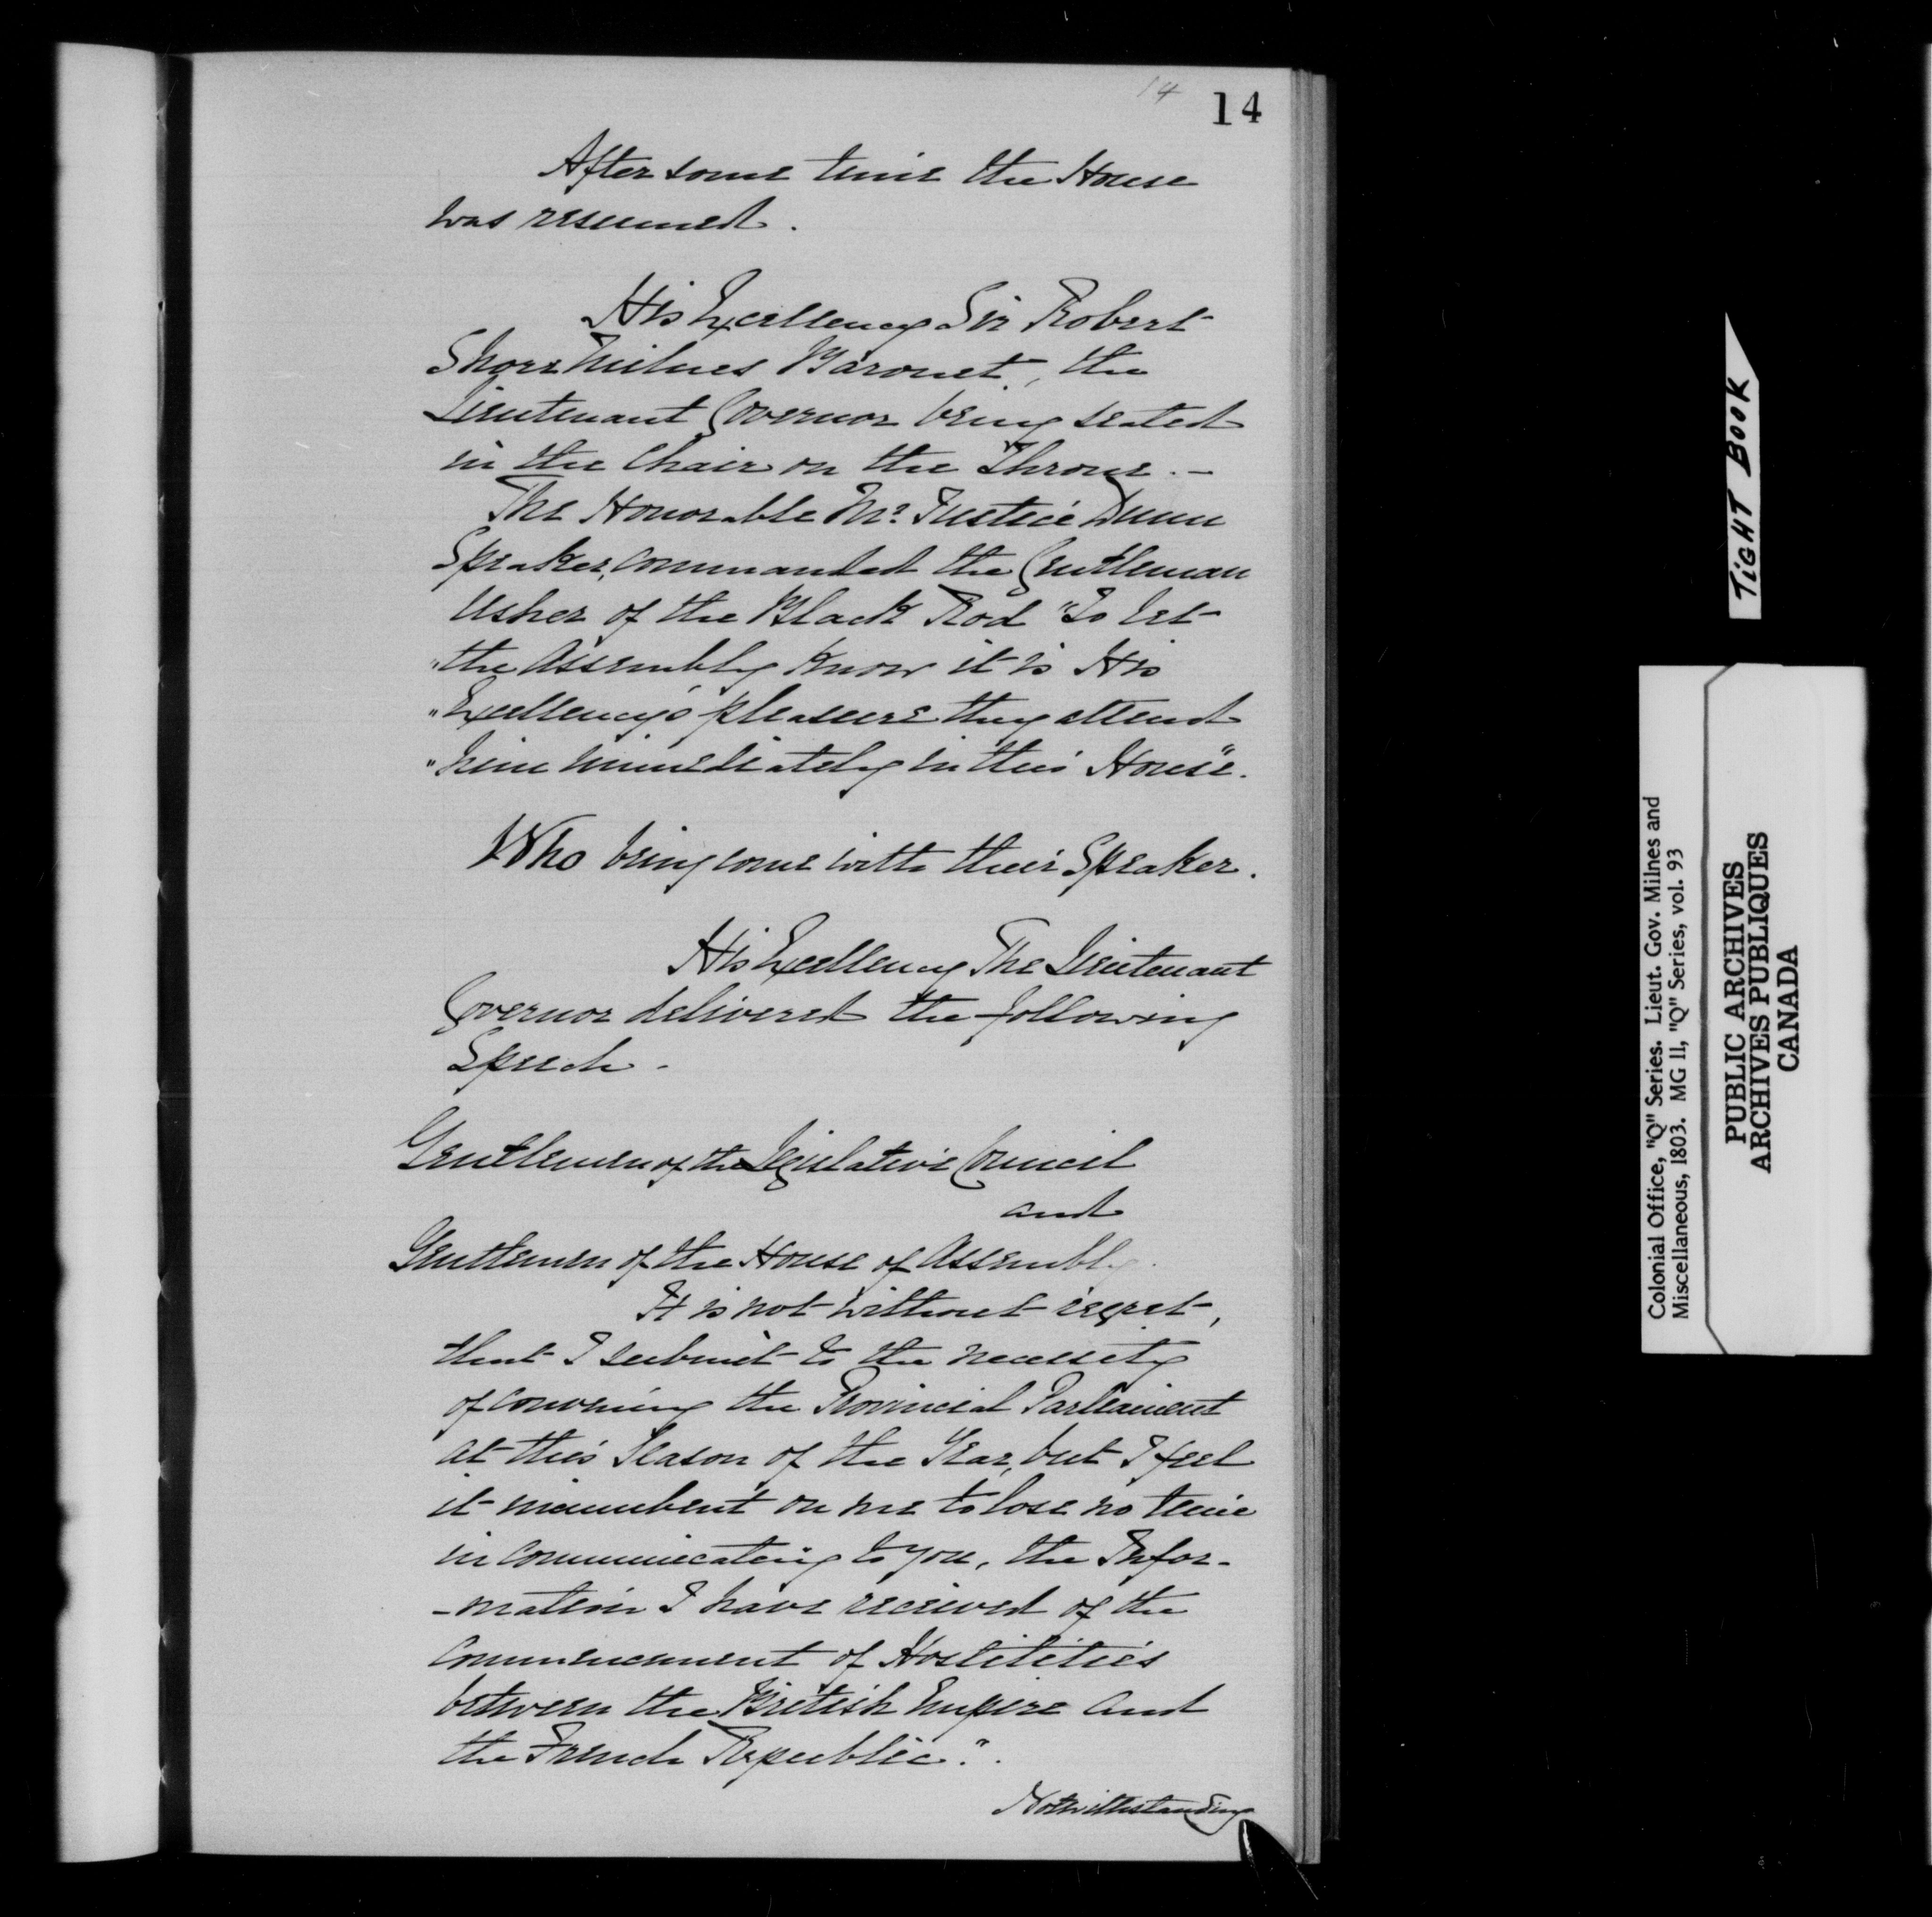 14
14
After some time the House
was resumed.
His Excellency Sir Robert
Shore Milnes Baronet, the
Lieutenant Governor being seated
in the Chair on the Throne. —
The Honorable Mr. Justice Dunn
Speaker, commanded the Gentleman
Usher of the Black Rod "To let
"the Assembly know it is His
"Excellency's pleasure they attend
"him immediately in this House".
Who being come with their Speaker.
His Excellency The Lieutenant
Governor delivered the following
Speech -
Gentlemen of the Legislative Council
and
Gentlemen of the House of Assembly.
It is not without regret,
that I submit to the necessity
of convening the Provincial Parliament
at this Season of the Year, but I feel
it incumbent on me to lose no time
in communicating to you, the Infor-
-mation I have received of the
Commencement of Hostilities
between the British Empire and
the French Republic".
Notwithstanding
TIGHT BOOK
Colonial Office, "Q" Series. Lieut. Gov. Milnes and
Miscellaneous, 1803. MG 11, "Q" Series, vol. 93
PUBLIC ARCHIVES
ARCHIVES PUBLIQUES
CANADA